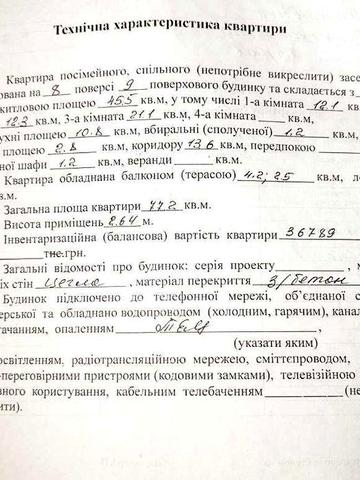 Технічна характеристика квартири
Квартира посімейного, спільного (непотрібне викреслити) засе
ована на 8 поверсі 9 поверхового будинку та складається з
житловою площею 45.5 кв.м, у тому числі 1-а кімната 12.1 кв
12.3 кв.м, 3-а кімната 21.1 кв.м, 4-а кімната кв.м,
ухні площею 10.8 кв.м, вбиральні (сполученої) 1.2 кв.м,
площею 2.8 кв.м, коридору 13.6 кв.м, передпокою
ної шафи 1.2 кв.м, веранди кв.м.
Квартира обладнана балконом (терасою) 4.2; 2.5 кв.м, л
в.м.
Загальна площа квартири 77.2 кв.м.
Висота приміщень 2.64 м.
Інвентаризаційна (балансова) вартість квартири 36789
тис.грн.
Загальні відомості про будинок: серія проекту , м
іх стін цегла , матеріал перекриття З/бетон
Будинок підключено до телефонної мережі, об'єднаної с
ерської та обладнано водопроводом (холодним, гарячим), канал
тачанням, опаленням ТЕЦ ,
(указати яким)
освітленням, радіотрансляційною мережею, сміттєпроводом,
-переговорними пристроями (кодовими замками), телевізійною
вного користування, кабельним телебаченням (не
ити).